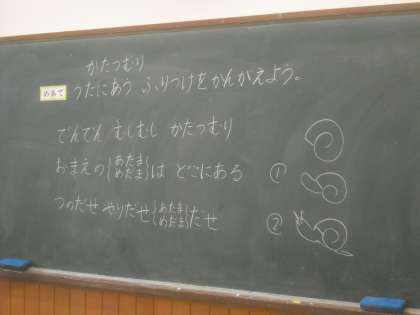 かたつむり
めあて うたにあう ふりつけをかんがえよう。
でんでん むしむし かたつむり
おまえの(あたま めだま)は どこにある ①
つのだせ やりだせ(あたま めだま)だせ ②